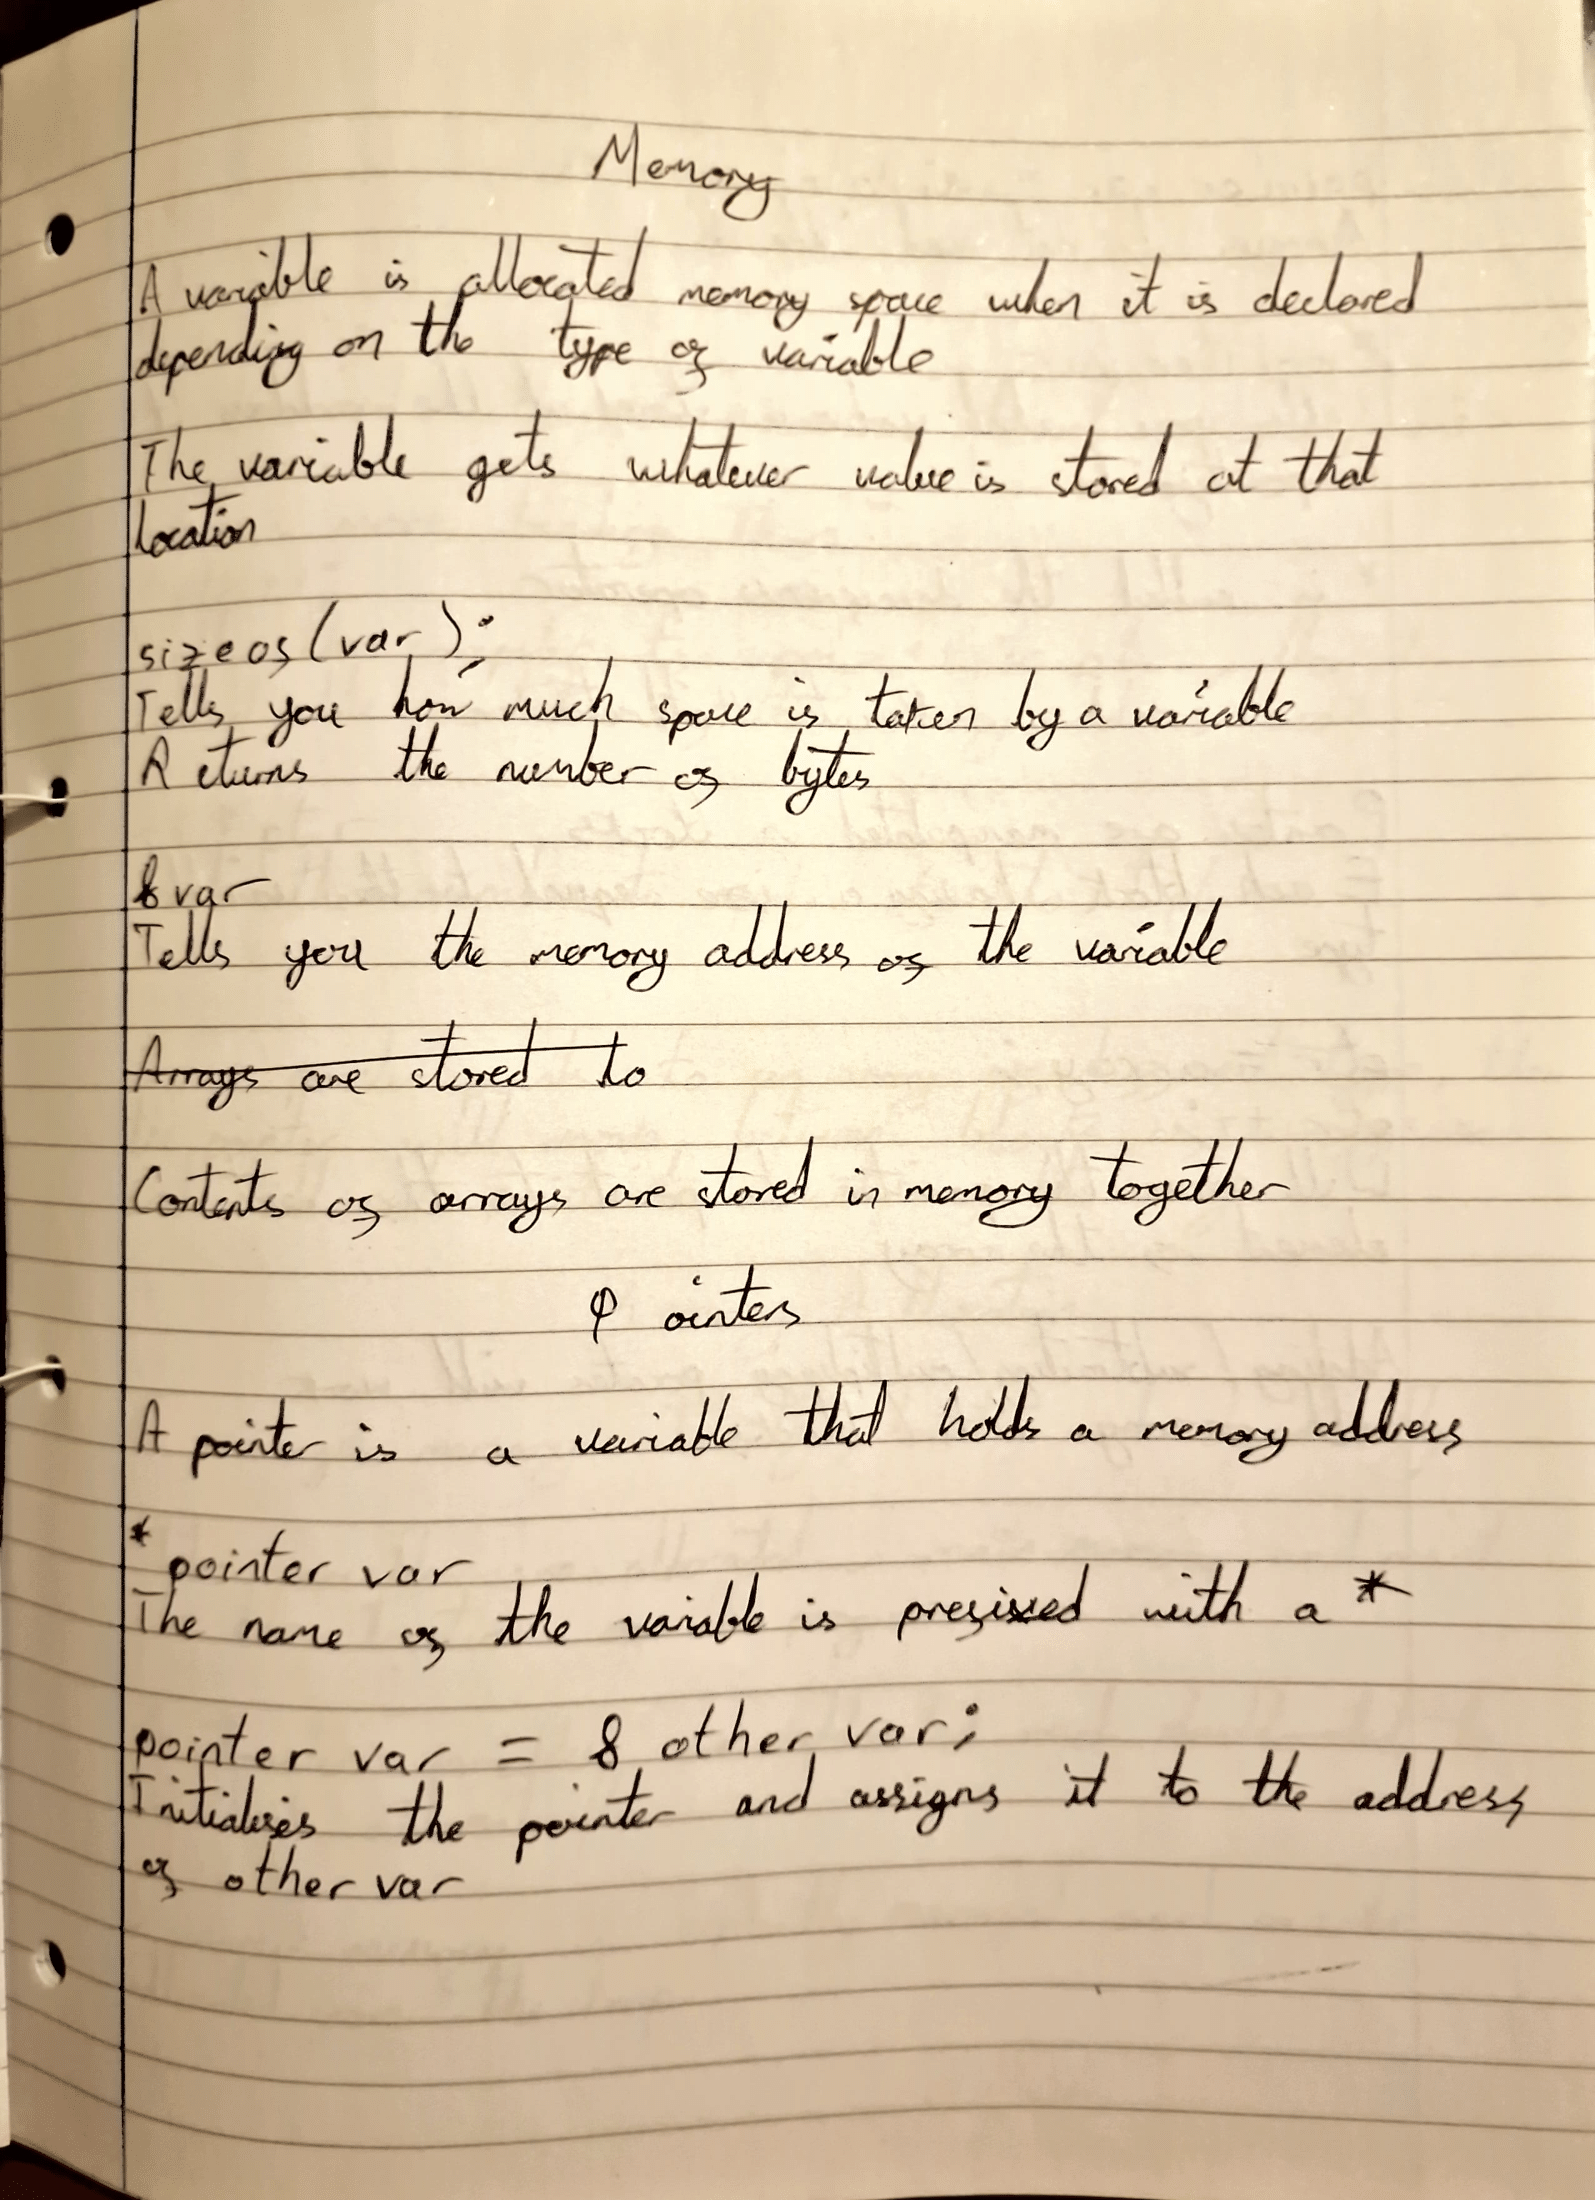 Memory
A variable is allocated memory space when it is declared
depending on the type of variable
The variable gets whatever value is stored at that
location
sizeof(var);
Tells you how much space is taken by a variable
Returns the number of bytes
&var
Tells you the memory address of the variable
Arrays are stored to
Contents of arrays are stored in memory together
Pointers
A pointer is a variable that holds a memory address
* pointer var
The name of the variable is prefixed with a *
pointer var = & other var;
Initialises the pointer and assigns it to the address
of other var